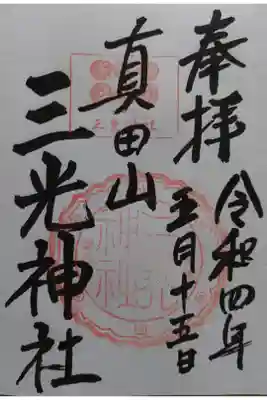 奉拝
令和四年
五月十五日
真田山
三光神社